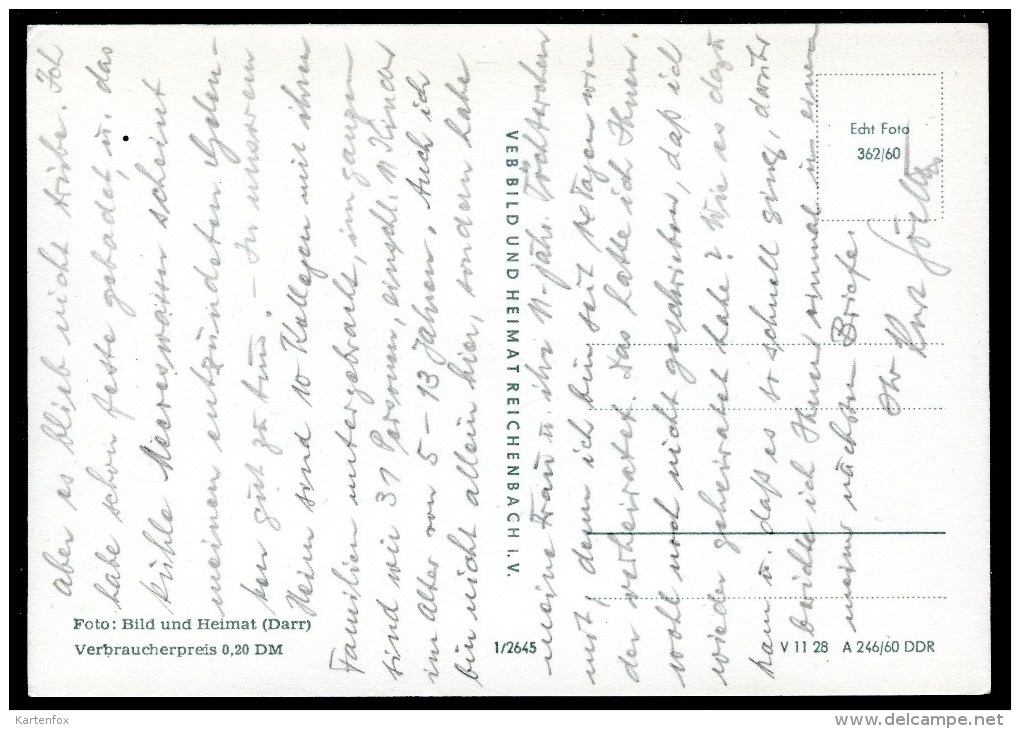 aber es blieb nicht trübe. Ich
habe schon feste gebadet u. das
kühle Meerwasser scheint
meinen entzündeten Gelen-
ken gut zu tun. - In unserem
Heim sind 10 Kollegen mit ihren
Familien untergebracht, im ganzen
sind wir 31 Personen, einschl. 11 Kinder
im Alter von 5 - 13 Jahren. Auch ich
bin nicht allein hier, sondern habe
meine Frau u. ihr 11-jähr. Töchterchen
mit, denn ich bin seit 14 Tagen wie-
der verheiratet. Das hatte ich Ihnen
wohl noch nicht geschrieben, daß ich
wieder geheiratet habe? Wie es dazu
kam u. daß es so schnell ging, darüber
berichte ich Ihnen einmal in einem
meiner nächsten Briefe.
Ihr
VEB BILD UND HEIMAT REICHENBACH i. V.
Echt Foto
362/60
Foto: Bild und Heimat (Darr)
Verbraucherpreis 0,20 DM
1/2645
V 11 28 A 246/60 DDR
Kartenfox
www.delcampe.net